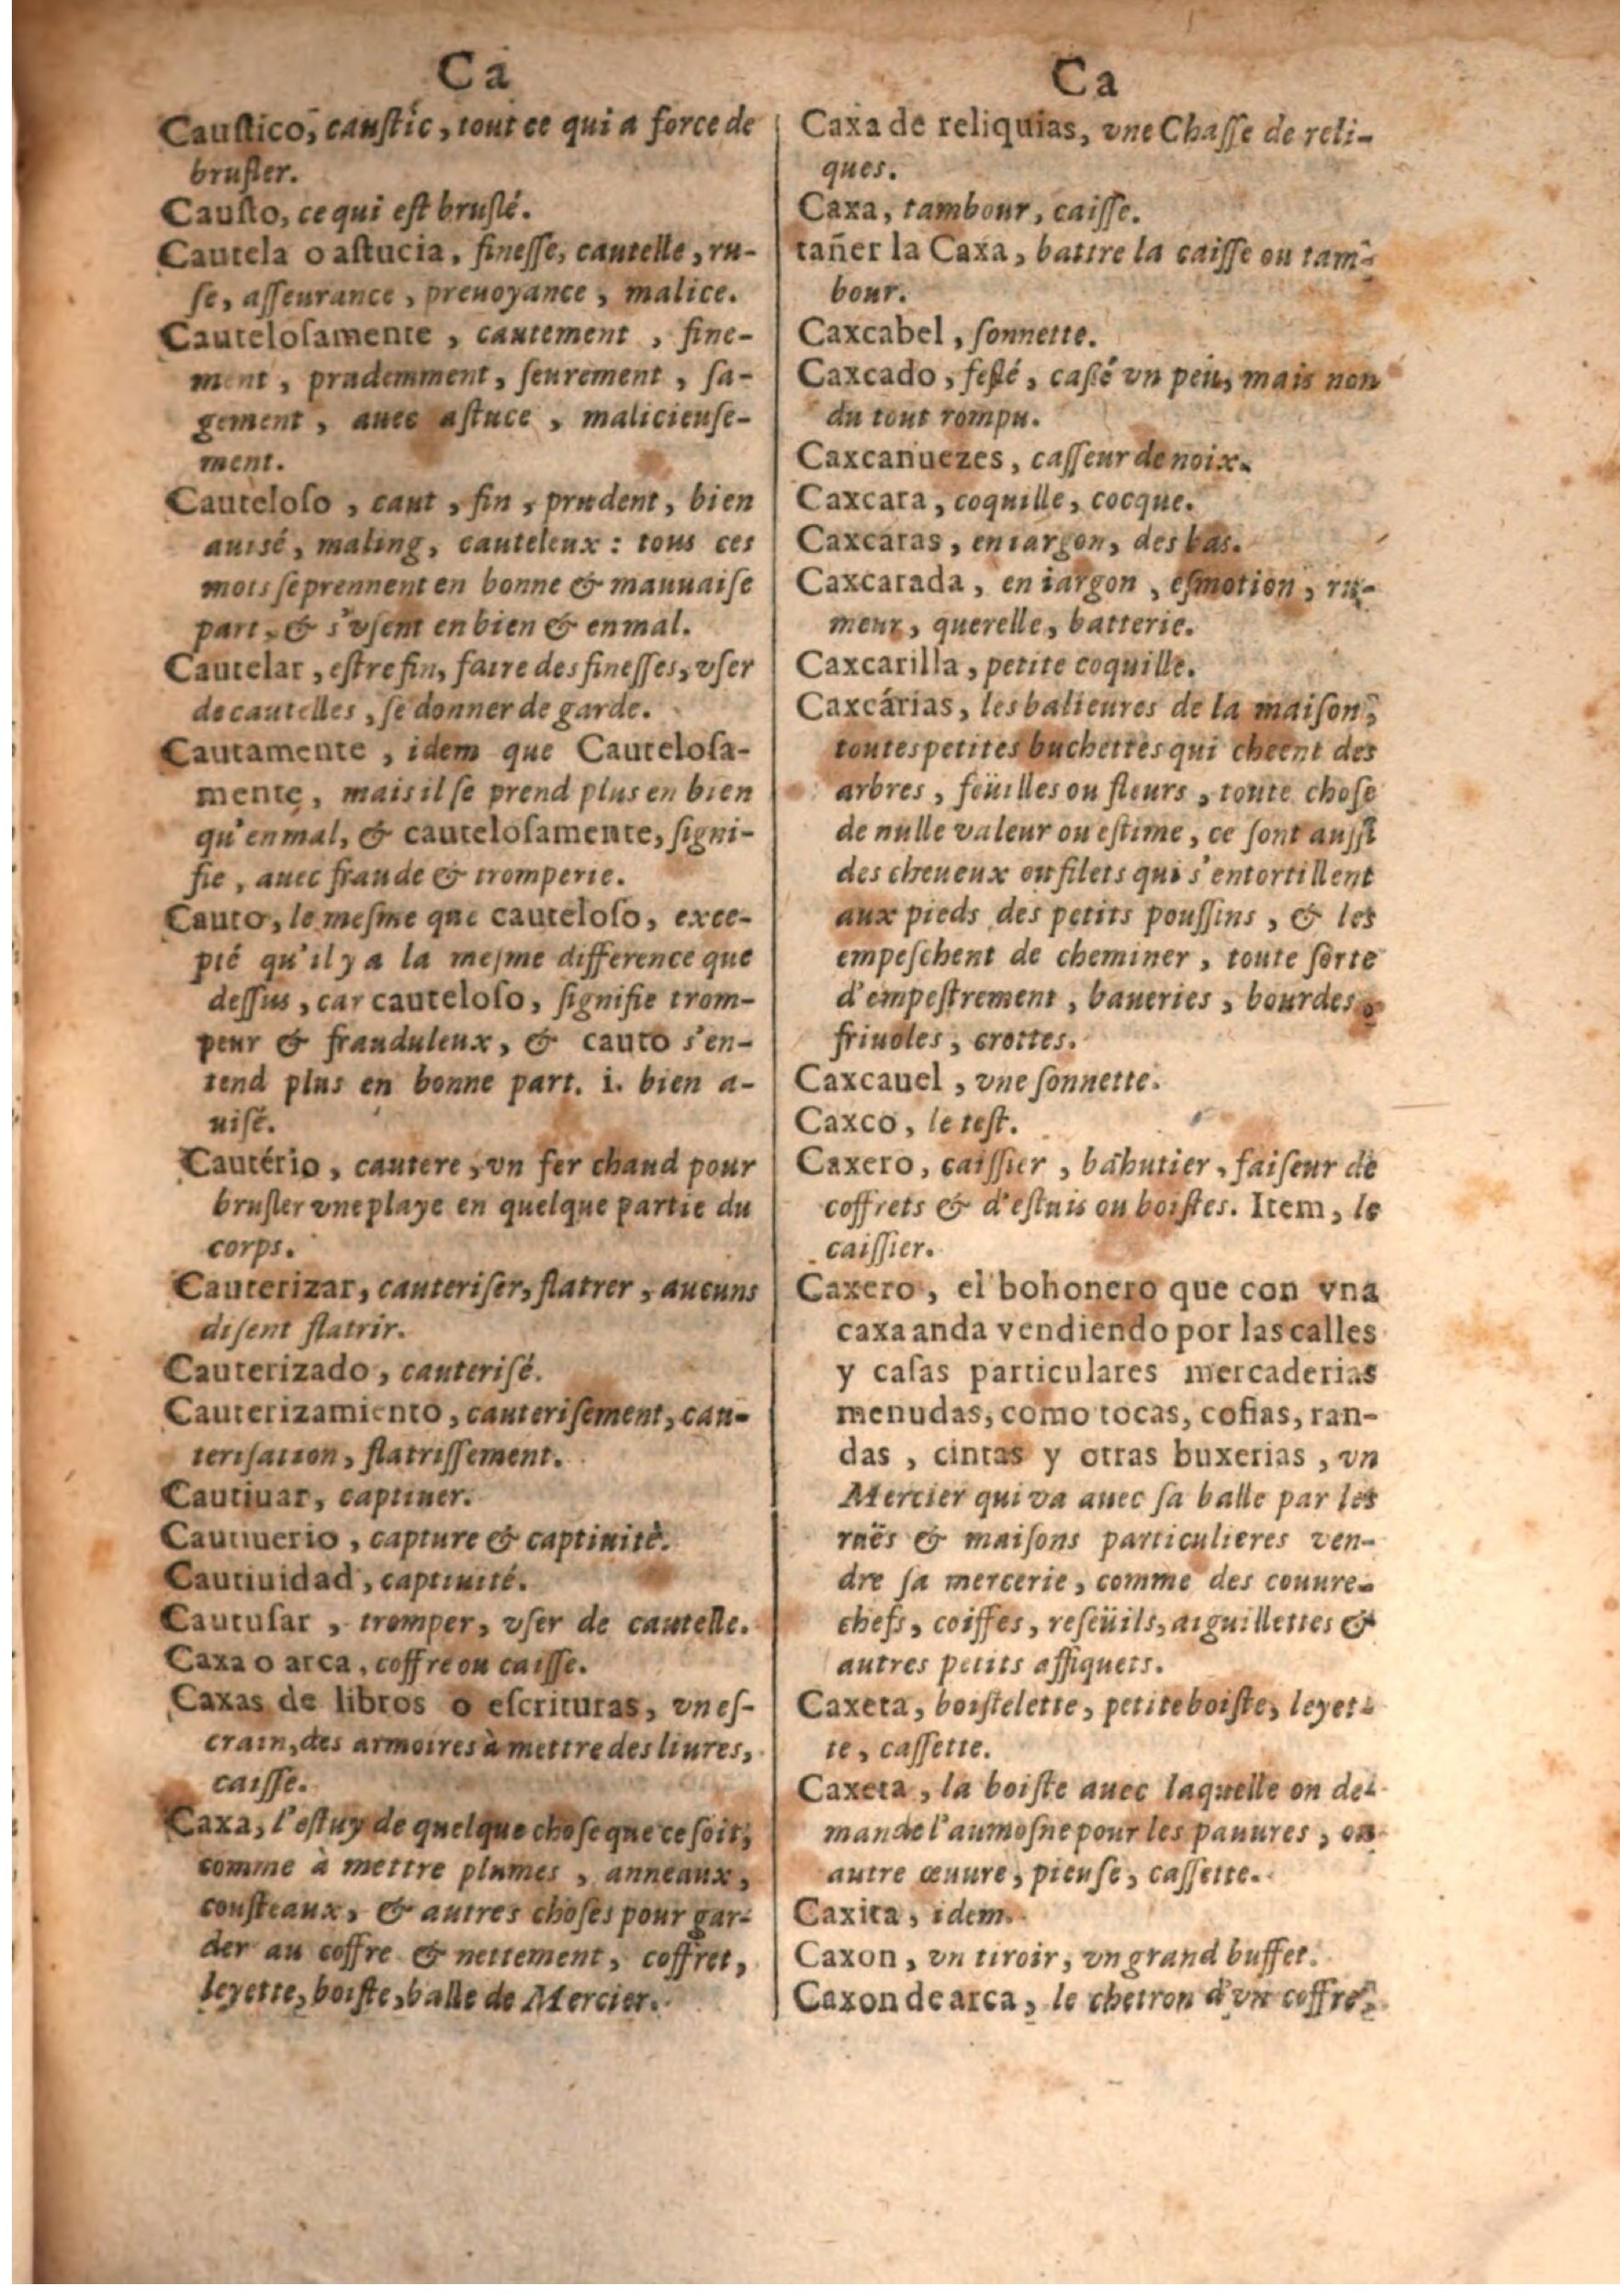 Ca
Cauſtico, cauſtic, tout ce qui a force de
bruſler.
Cauſto, ce qui eſt bruſlé.
Cautela o aſtucia, fineſſe, cautelle, ru-
ſe, aſſeurance, preuoyance, malice.
Cauteloſamente, cautement, fine-
ment, prudemment, ſeurement, ſa-
gement, auec aſtuce, malicieuſe-
ment.
Cauteloſo, caut, fin, prudent, bien
auisé, maling, cauteleux: tous ces
mots ſe prennent en bonne & mauuaiſe
part, & s'vſent en bien & en mal.
Cautelar, eſtre fin, faire des fineſſes, vſer
de cautelles, ſe donner de garde.
Cautamente, idem que Cauteloſa-
mente, mais il ſe prend plus en bien
qu'en mal, & cauteloſamente, ſigni-
fie, auec fraude & tromperie.
Cauto, le meſme que cauteloſo, exce-
pté qu'il y a la meſme difference que
deſſus, car cauteloſo, ſignifie trom-
peur & frauduleux, & cauto s'en-
tend plus en bonne part. i. bien a-
uiſé.
Cautério, cautere, vn fer chaud pour
bruſler vne playe en quelque partie du
corps.
Cauterizar, cauteriſer, flatrer, aucuns
diſent flatrir.
Cauterizado, cauteriſé.
Cauterizamiento, cauteriſement, cau-
teriſation, flatriſſement.
Cautiuar, captiuer.
Cautiuerio, capture & captiuitè.
Cautiuidad, captiuité.
Cautuſar, tromper, vſer de cautelle.
Caxa o arca, coffre ou caiſſe.
Caxas de libros o eſcrituras, vn eſ-
crain, des armoires à mettre des liures,
caiſſe.
Caxa, l'eſtuy de quelque choſe que ce ſoit,
comme à mettre plumes, anneaux,
couſteaux, & autres choſes pour gar-
der au coffre & nettement, coffret,
leyette, boiſte, balle de Mercier.
Ca
Caxa de reliquias, vne Chaſſe de reli-
ques.
Caxa, tambour, caiſſe.
tañer la Caxa, battre la caiſſe ou tam-
bour.
Caxcabel, ſonnette.
Caxcado, feſlé, caſsé vn peu, mais non
du tout rompu.
Caxcanuezes, caſſeur de noix.
Caxcara, coquille, cocque.
Caxcaras, en iargon, des bas.
Caxcarada, en iargon, eſmotion, ru-
meur, querelle, batterie.
Caxcarilla, petite coquille.
Caxcárias, les balieures de la maiſon,
toutes petites buchettes qui cheent des
arbres, feüilles ou fleurs, toute choſe
de nulle valeur ou eſtime, ce ſont auſſi
des cheueux ou filets qui s'entortillent
aux pieds des petits pouſſins, & les
empeſchent de cheminer, toute ſorte
d'empeſtrement, baueries, bourdes,
friuoles, crottes.
Caxcauel, vne ſonnette.
Caxco, le teſt.
Caxero, caiſſier, bahutier, faiſeur de
coffrets & d'eſtuis ou boiſtes. Item, le
caiſſier.
Caxero, el bohonero que con vna
caxa anda vendiendo por las calles
y caſas particulares mercaderias
menudas, como tocas, cofias, ran-
das, cintas y otras buxerias, vn
Mercier qui va auec ſa balle par les
ruës & maiſons particulieres ven-
dre ſa mercerie, comme des couure-
chefs, coiffes, reſeüils, aiguillettes &
autres petits affiquets.
Caxeta, boiſtelette, petite boiſte, leyet-
te, caſſette.
Caxeta, la boiſte auec laquelle on de-
mande l'aumoſne pour les pauures, ou
autre œuure, pieuſe, caſſette.
Caxita, idem.
Caxon, vn tiroir, vn grand buffet.
Caxon de arca, le chetron d'vn coffre,